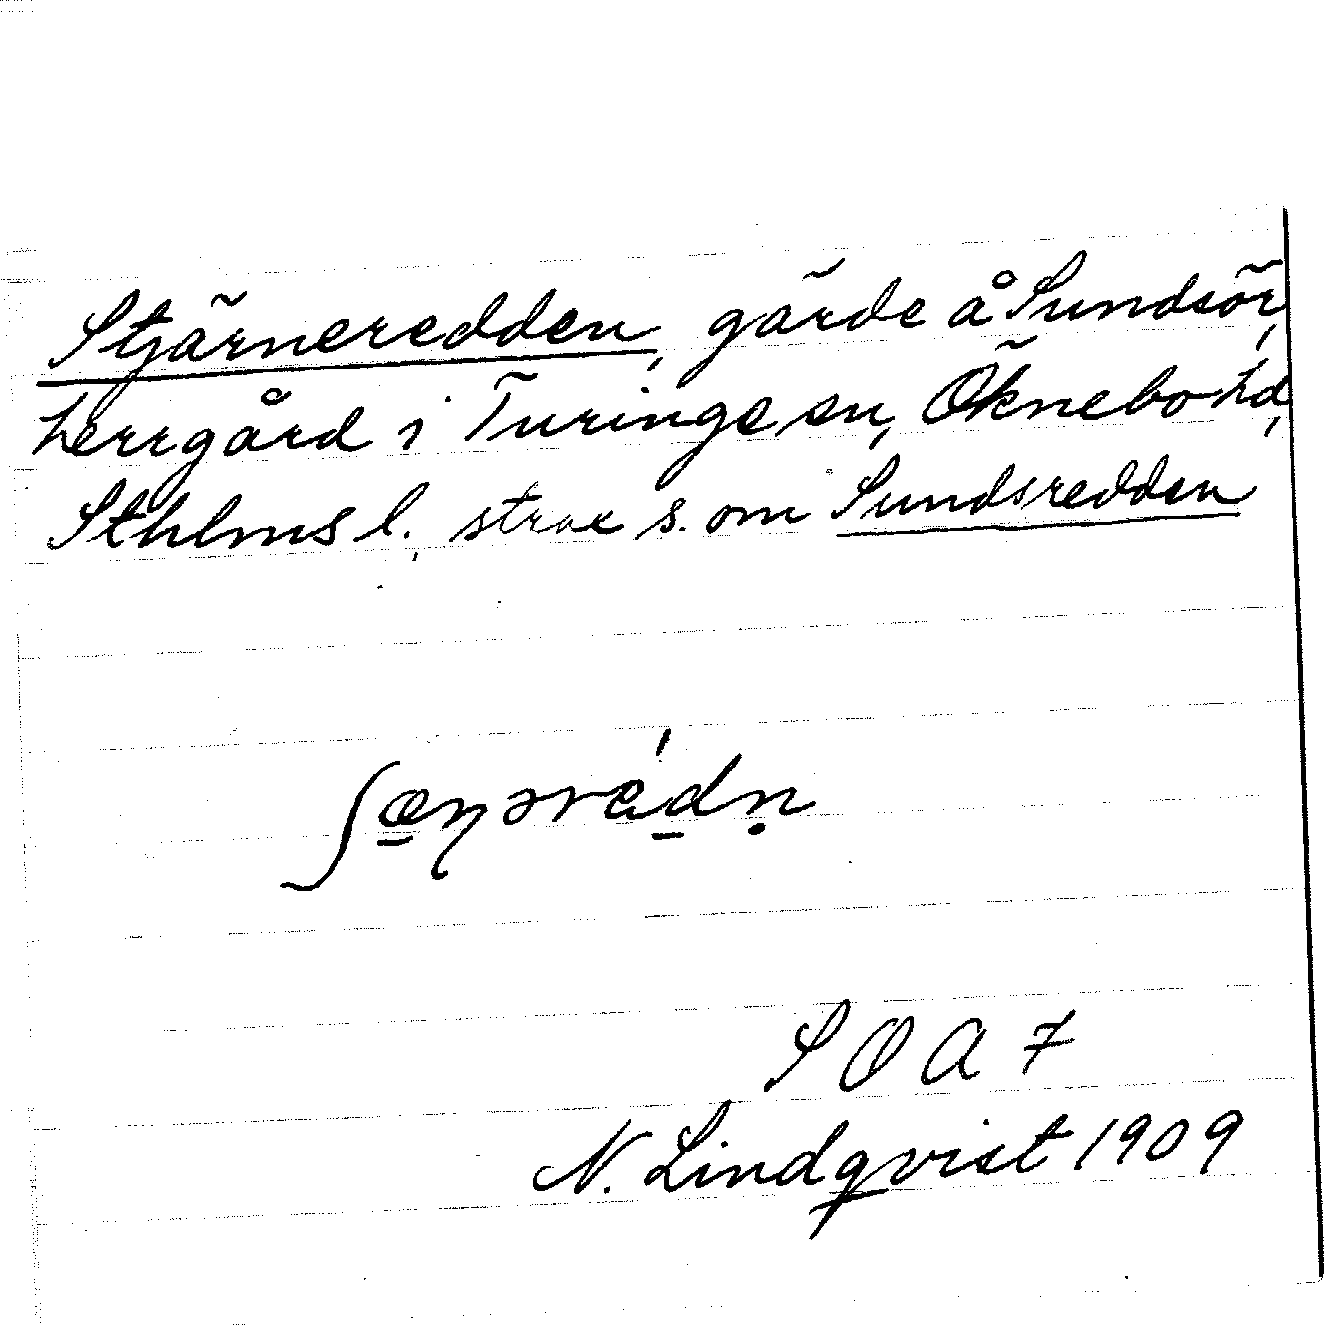 Stjärneredden, gärde å Sundsör,
herrgård i Turinge sn, Öknebo hd,
Sthlms l., strax s. om Sundsredden
ʃæ̱ɳərèḏṇ
S O A 7
N. Lindqvist 1909